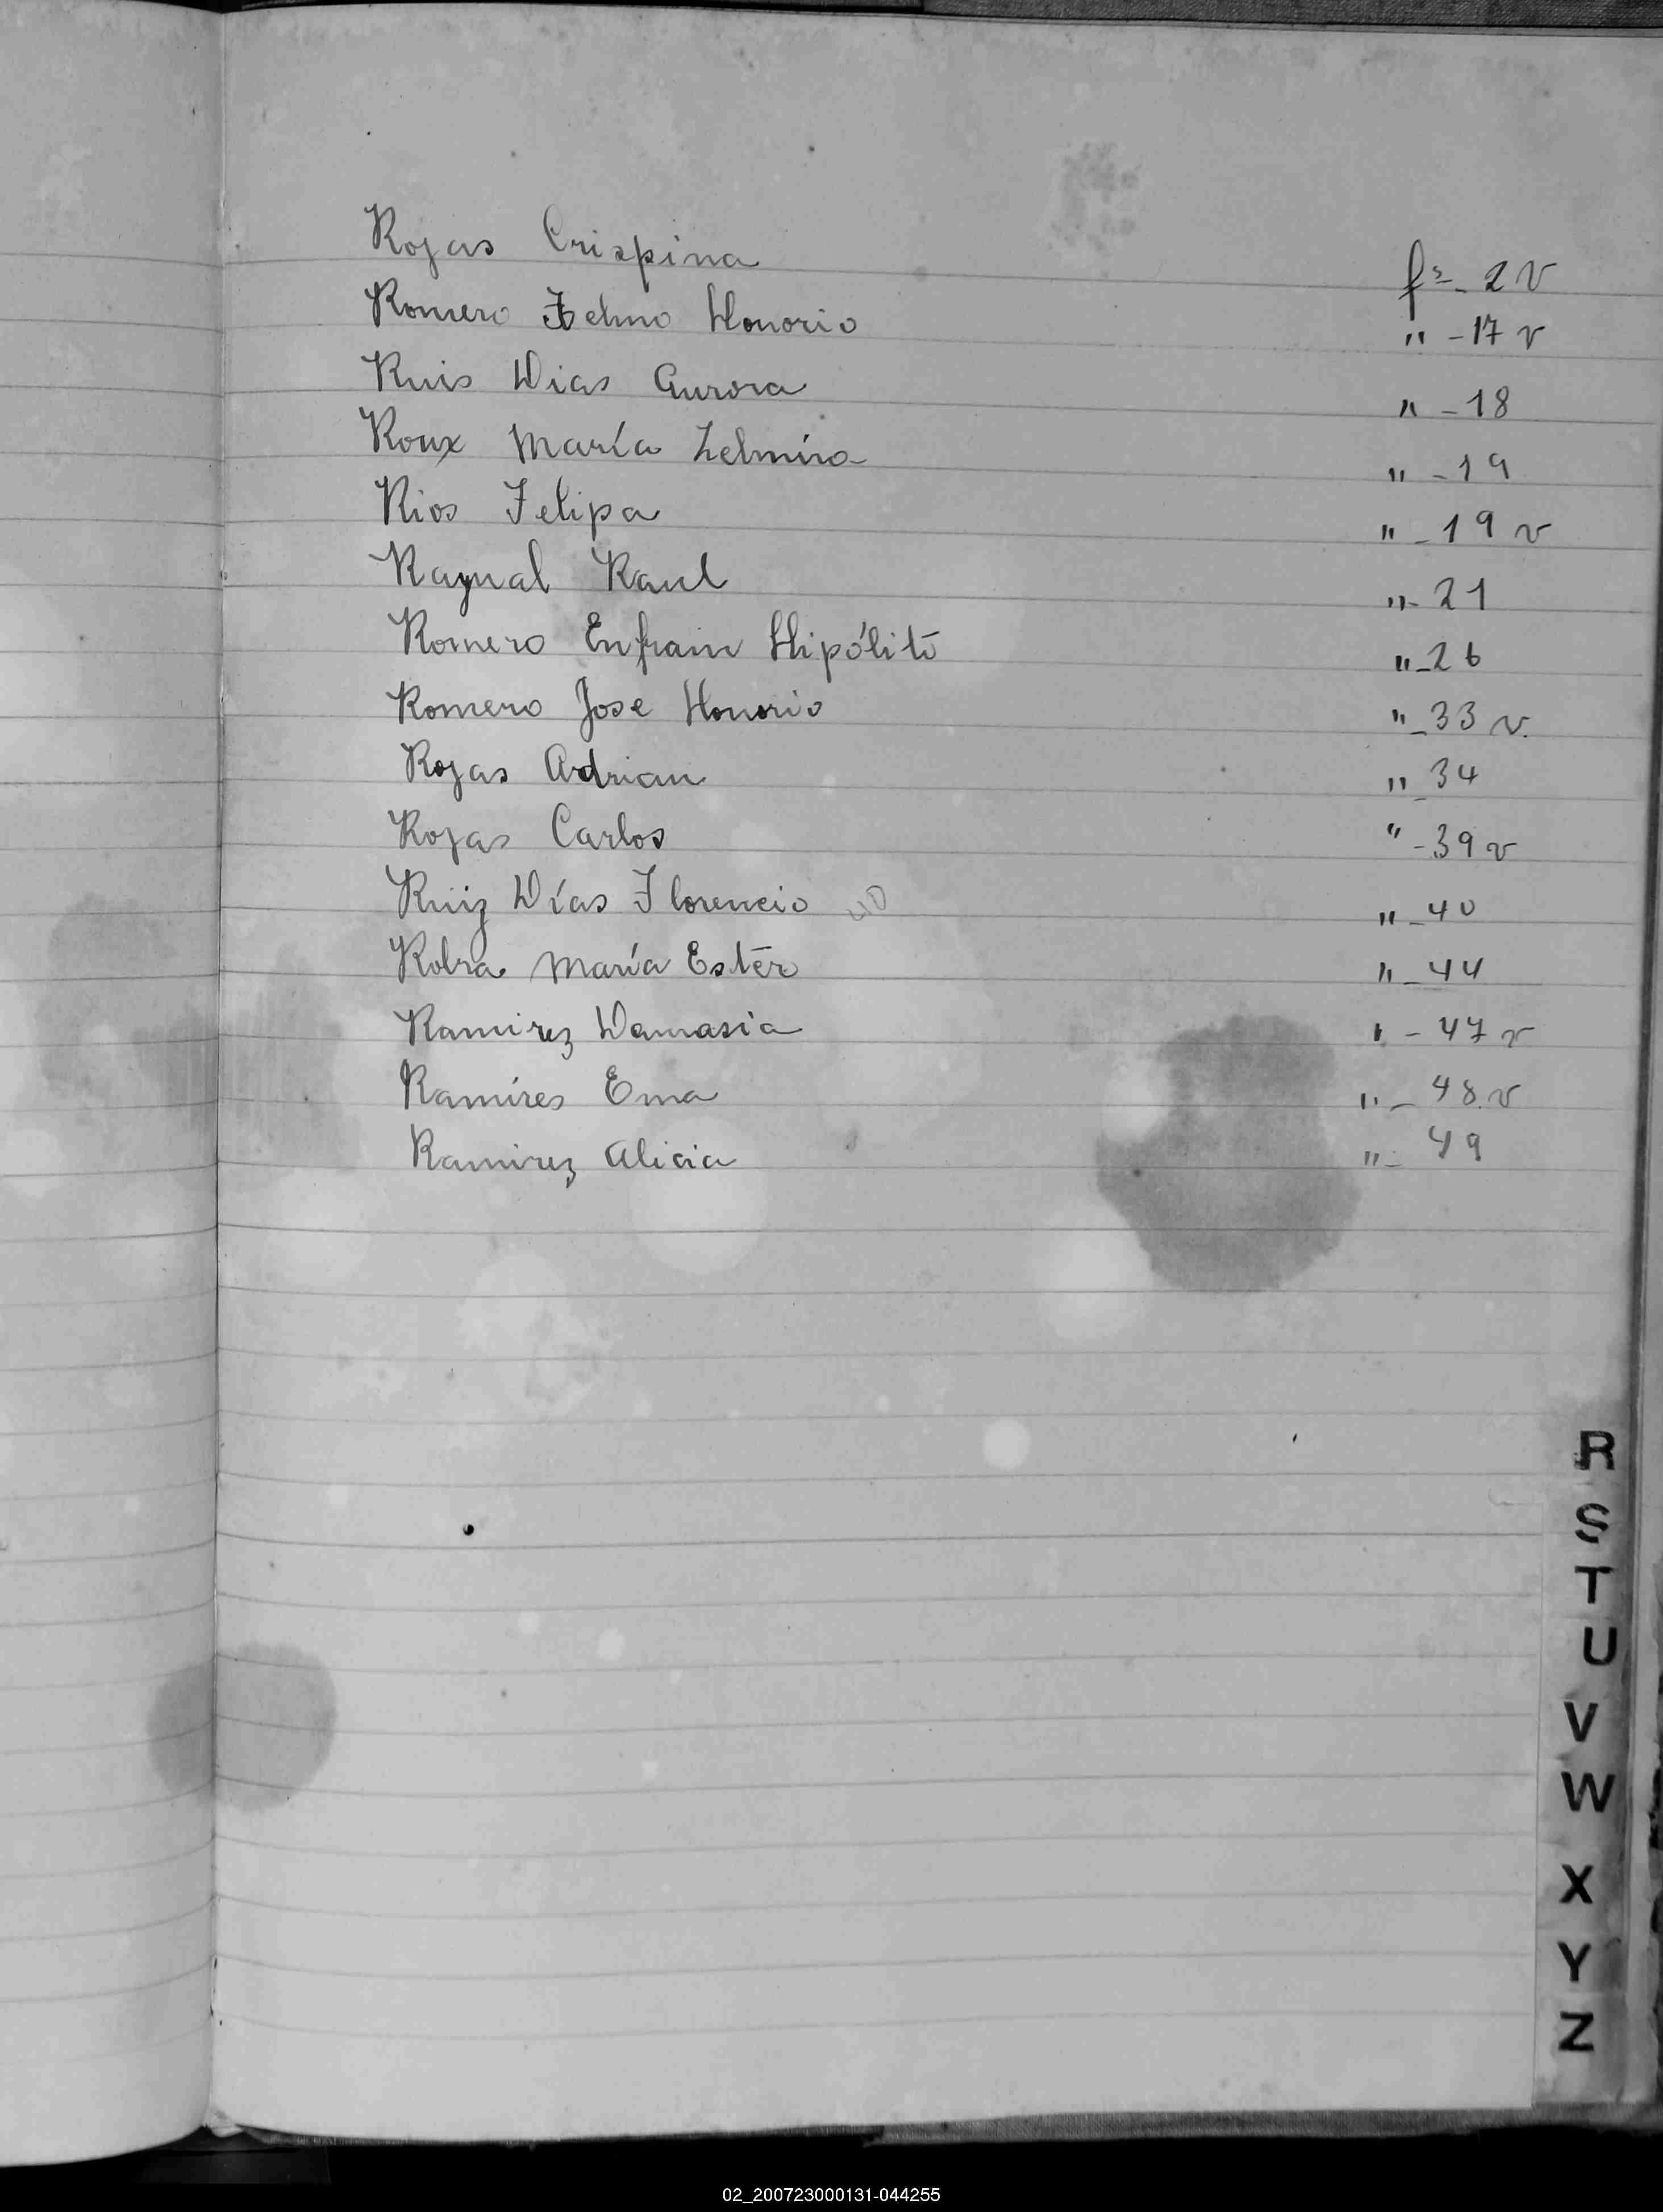 Rojas Crispina fs_ 2 v
Romero Telmo Honorio " - 17 v
Ruis Dias Aurora " - 18
Roux María Zelmira " - 19
Rios Felipa " - 19 v
Raynal Raul " - 21
Romero Enfrain Hipólito " - 26
Romero Jose Honorio " - 33 v.
Rojas Adrian " - 34
Rojas Carlos " - 39 v
Ruiz Días Florencio 40 " - 40
Robra María Ester " - 44
Ramirez Damasia " - 47 v
Ramíres Ema " - 48.v
Ramirez Alicia " - 49
R
S
T
U
V
W
X
Y
Z
02_200723000131-044255